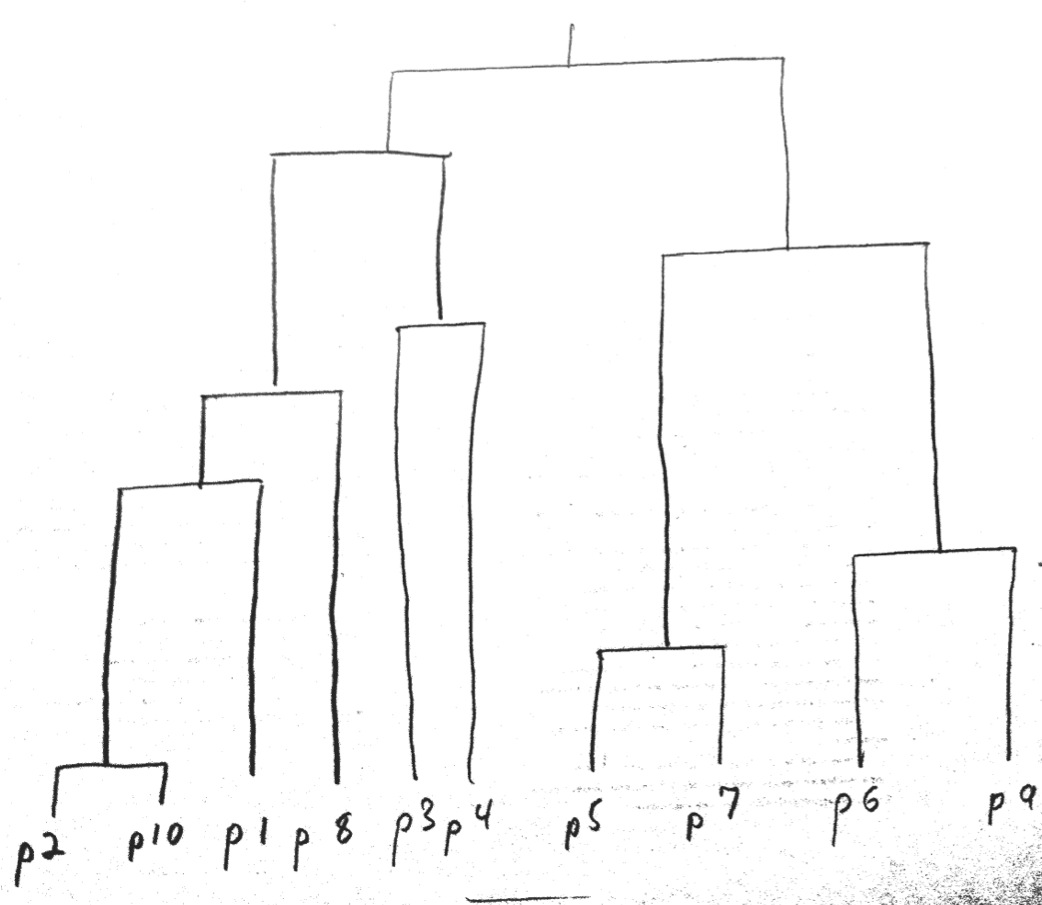 p2 p10 p1 p8 p3 p4 p5 p7 p6 p9